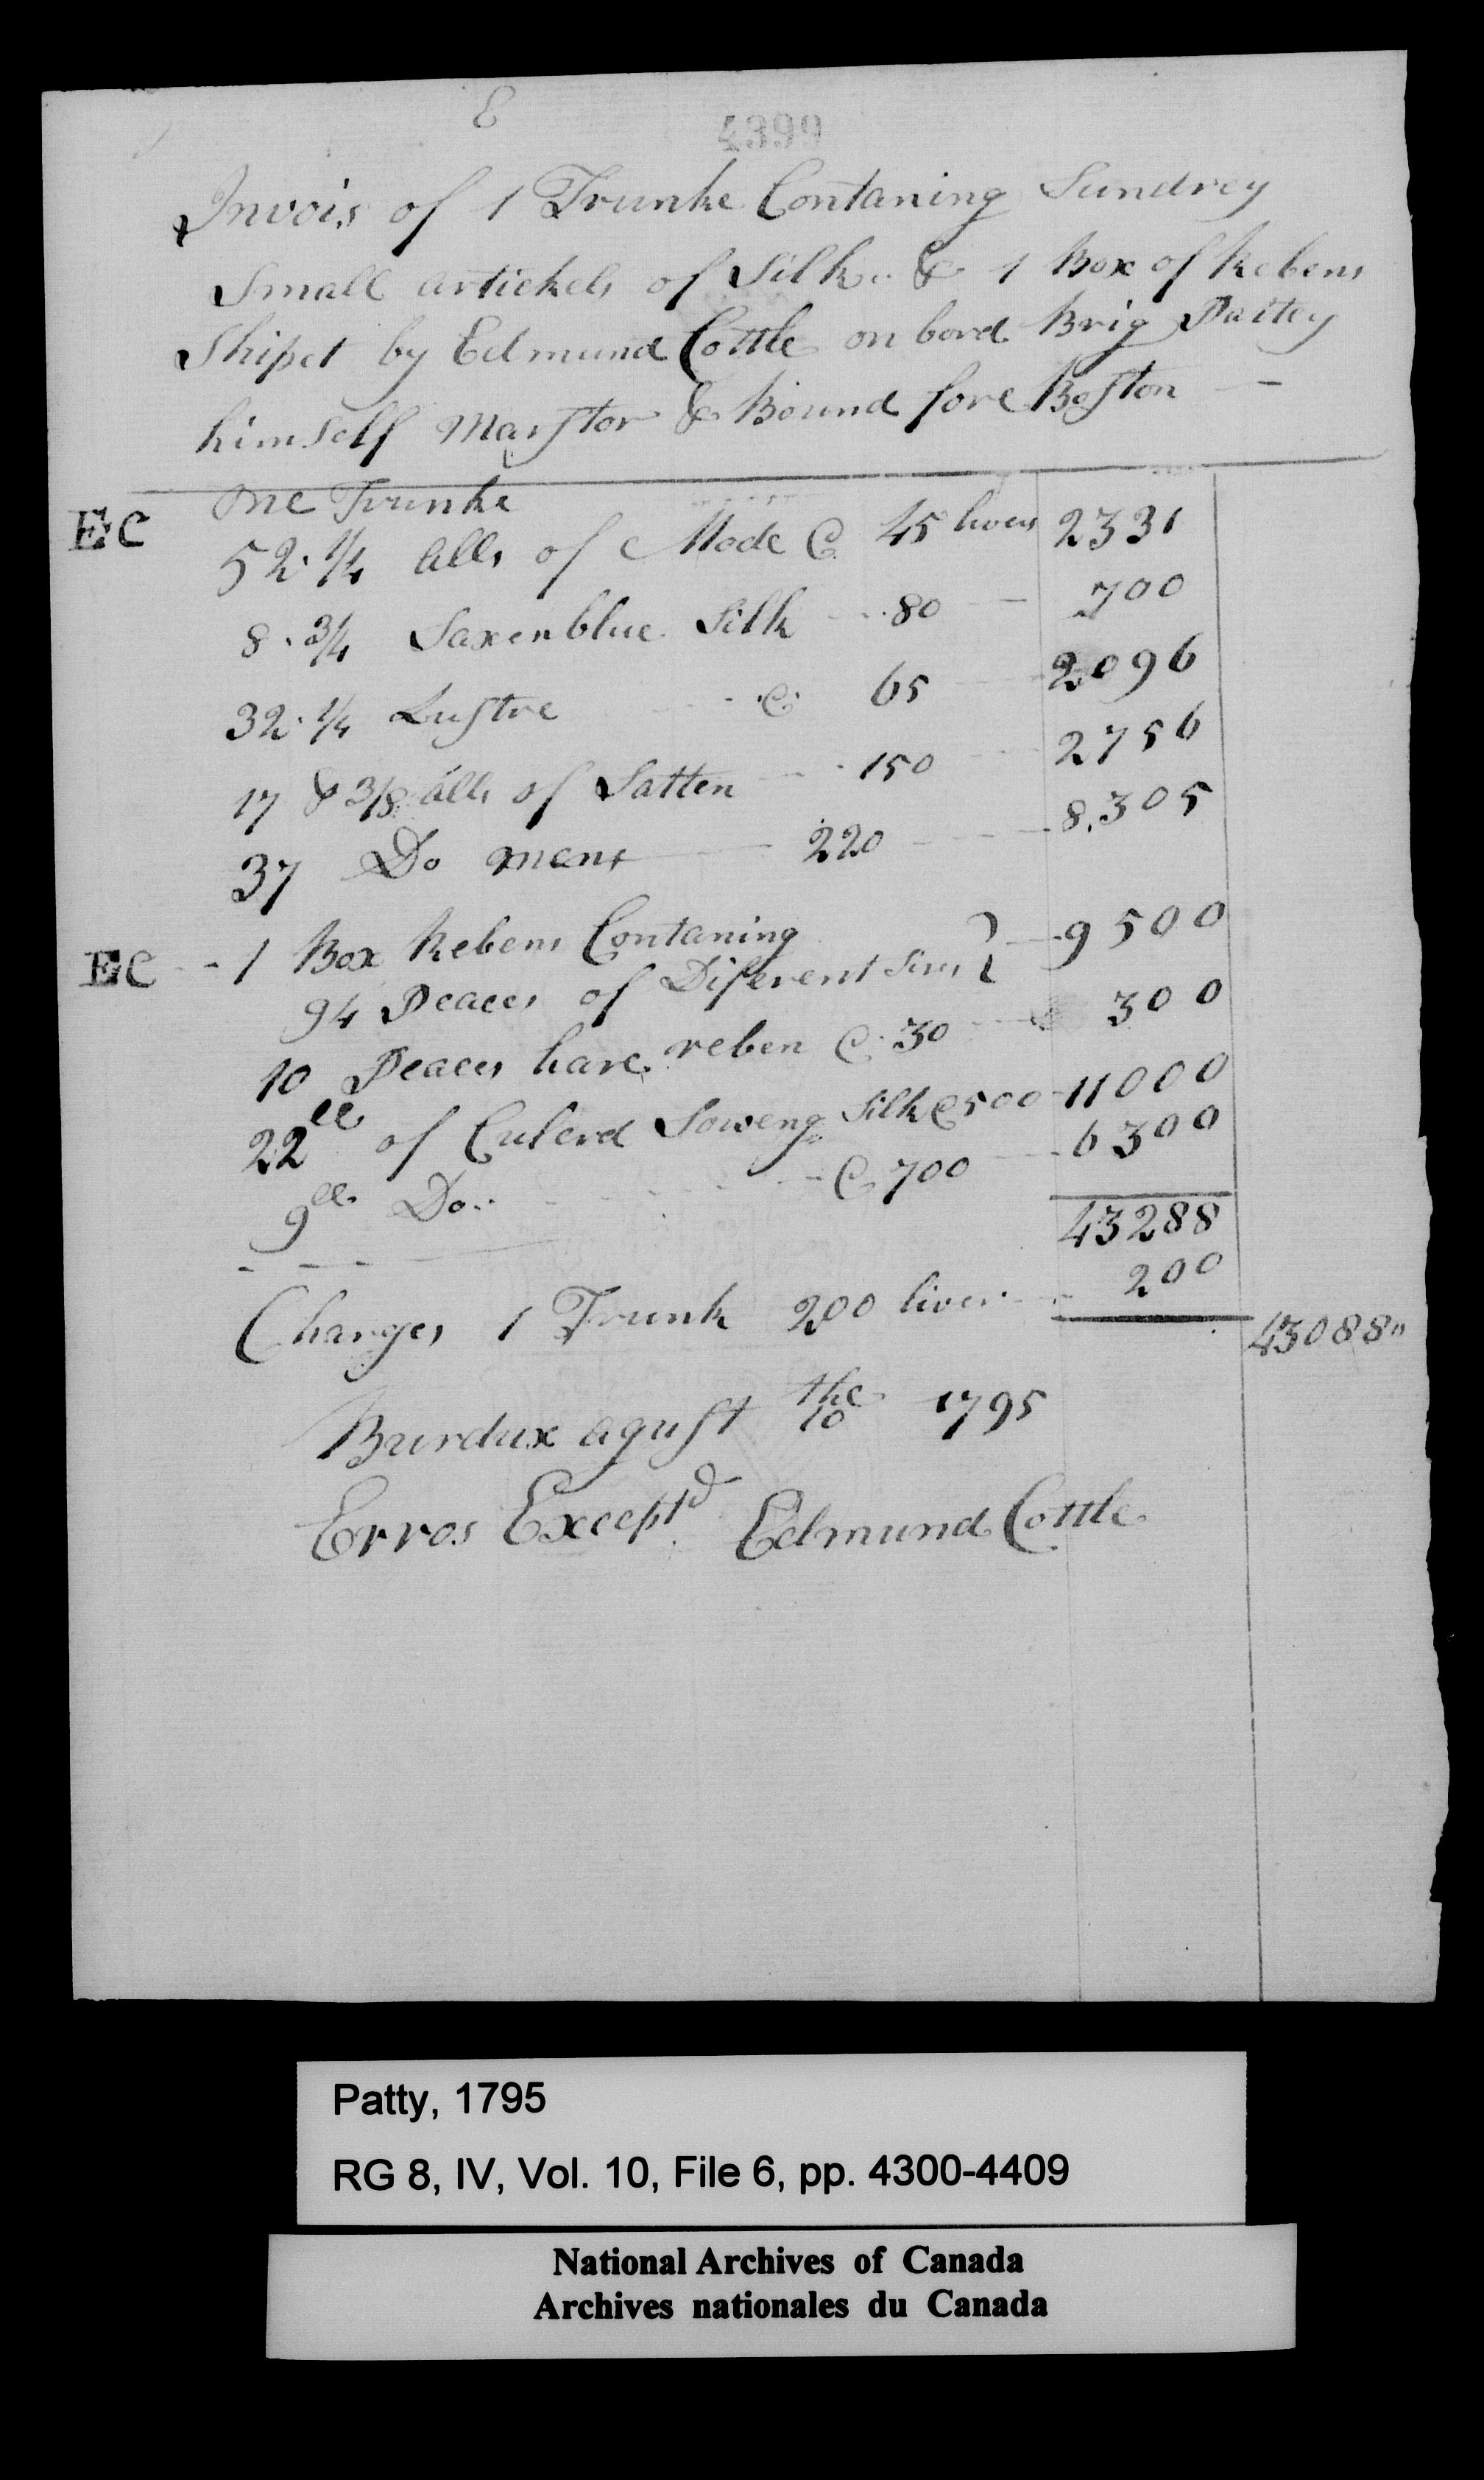 E
4399
Invois of 1 Trunke Contaning Sundrey
Small artickels of Silk. & 1 Box of Rebens
Shipet by Edmund Cottle on bord Brig Pattey
himself Marster & Bound fore Boston —
One Trunke
EC 52.1/4 alls of Mode @ 45 livers 2331
8.3/4 Saxen blue Silk - - 80 — 700
32.1/4 Lustre - - @ 65 — 2096
17 & 3/8 alls of Satten - - 150 - - 2756
37 Do mens — 220 - - - 8.305
EC - - 1 Box Rebens Contaning
94 Peaces of Diferent Sises } - - 9500
10 Peaces hare reben @ 30 - - - 300
22 ll of Culerd Soweng Silk @ 500 - 11000
9 ll Do.. - - - - - - @ 700 - - 6300
43288
Charges 1 Trunk 200 livers - - 200
43088"
Burdux agust the 10 1795
Erros Exceptd Edmund Cottle
Patty, 1795
RG 8, IV, Vol. 10, File 6, pp. 4300-4409
National Archives of Canada
Archives nationales du Canada